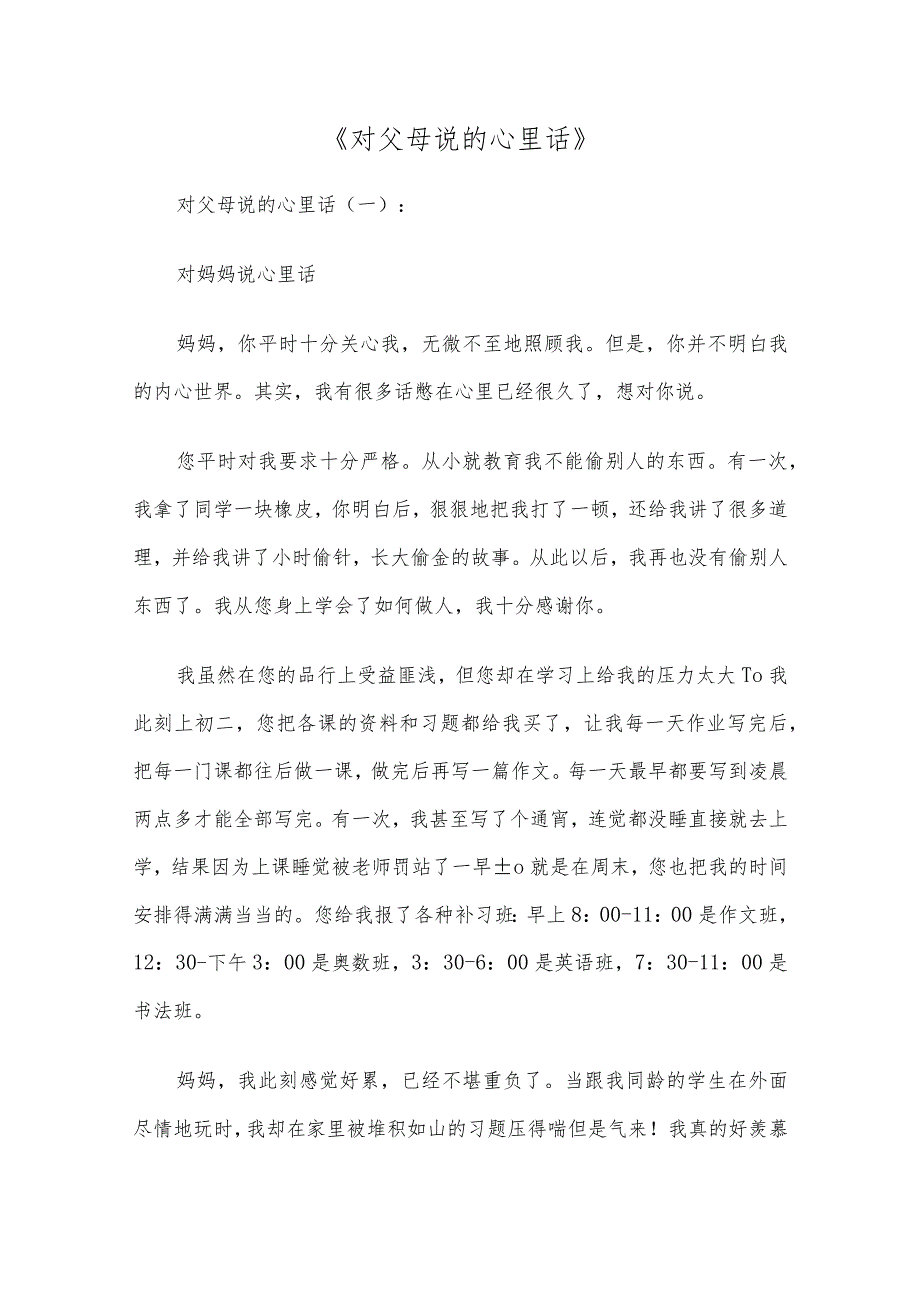 《对父母说的心里话》
对父母说的心里话（一）：
对妈妈说心里话
妈妈，你平时十分关心我，无微不至地照顾我。但是，你并不明白我
的内心世界。其实，我有很多话憋在心里已经很久了，想对你说。
您平时对我要求十分严格。从小就教育我不能偷别人的东西。有一次，
我拿了同学一块橡皮，你明白后，狠狠地把我打了一顿，还给我讲了很多道
理，并给我讲了小时偷针，长大偷金的故事。从此以后，我再也没有偷别人
东西了。我从您身上学会了如何做人，我十分感谢你。
我虽然在您的品行上受益匪浅，但您却在学习上给我的压力太大To我
此刻上初二，您把各课的资料和习题都给我买了，让我每一天作业写完后，
把每一门课都往后做一课，做完后再写一篇作文。每一天最早都要写到凌晨
两点多才能全部写完。有一次，我甚至写了个通宵，连觉都没睡直接就去上
学，结果因为上课睡觉被老师罚站了一早±o就是在周末，您也把我的时间
安排得满满当当的。您给我报了各种补习班：早上8：00-11：00是作文班，
12：30-下午3：00是奥数班，3：30-6：00是英语班，7：30-11：00是
书法班。
妈妈，我此刻感觉好累，已经不堪重负了。当跟我同龄的学生在外面
尽情地玩时，我却在家里被堆积如山的习题压得喘但是气来！我真的好羡慕